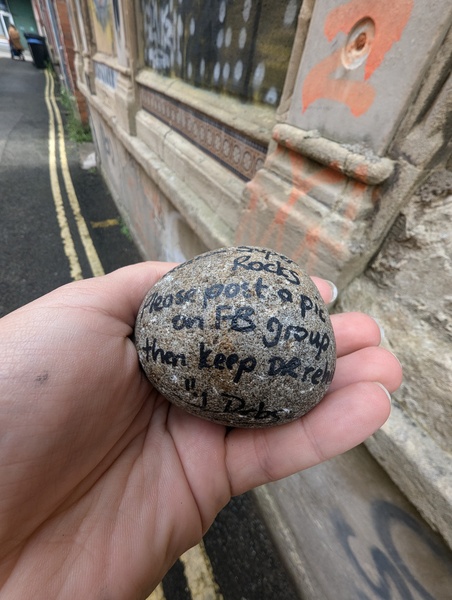 Rocks
Please post a pic
on FB group
then keep OR
"J Debs